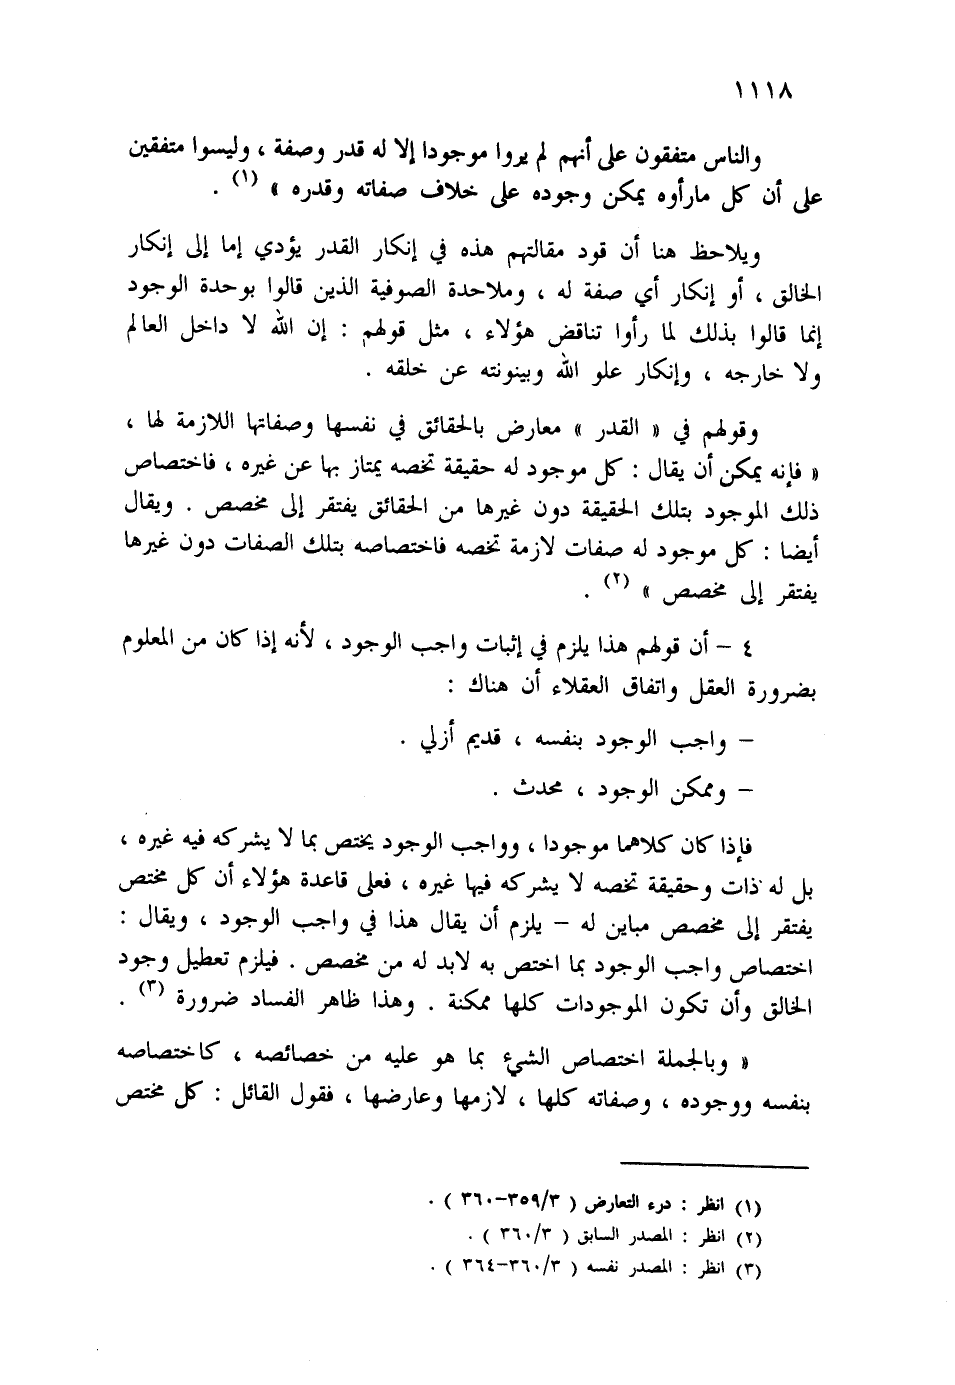 ١١١٨
والناس متفقون على أنهم لم يروا موجودا إلا له قدر وصفة ، وليسوا متفقين
على أن كل مارأوه يمكن وجوده على خلاف صفاته وقدره » (١) .
ويلاحظ هنا أن قود مقالتهم هذه في إنكار القدر يؤدي إما إلى إنكار
الخالق ، أو إنكار أي صفة له ، وملاحدة الصوفية الذين قالوا بوحدة الوجود
إنما قالوا بذلك لما رأوا تناقض هؤلاء ، مثل قولهم : إن الله لا داخل العالم
ولا خارجه ، وإنكار علو الله وبينونته عن خلقه .
وقولهم في « القدر » معارض بالحقائق في نفسها وصفاتها اللازمة لها ،
« فإنه يمكن أن يقال : كل موجود له حقيقة تخصه يمتاز بها عن غيره ، فاختصاص
ذلك الموجود بتلك الحقيقة دون غيرها من الحقائق يفتقر إلى مخصص . ويقال
أيضا : كل موجود له صفات لازمة تخصه فاختصاصه بتلك الصفات دون غيرها
يفتقر إلى مخصص » (٢) .
٤ – أن قولهم هذا يلزم في إثبات واجب الوجود ، لأنه إذا كان من المعلوم
بضرورة العقل واتفاق العقلاء أن هناك :
– واجب الوجود بنفسه ، قديم أزلي .
– وممكن الوجود ، محدث .
فإذا كان كلاهما موجودا ، وواجب الوجود يختص بما لا يشركه فيه غيره ،
بل له ذات وحقيقة تخصه لا يشركه فيها غيره ، فعلى قاعدة هؤلاء أن كل مختص
يفتقر إلى مخصص مباين له – يلزم أن يقال هذا في واجب الوجود ، ويقال :
اختصاص واجب الوجود بما اختص به لابد له من مخصص . فيلزم تعطيل وجود
الخالق وأن تكون الموجودات كلها ممكنة . وهذا ظاهر الفساد ضرورة (٣) .
« وبالجملة اختصاص الشيء بما هو عليه من خصائصه ، كاختصاصه
بنفسه ووجوده ، وصفاته كلها ، لازمها وعارضها ، فقول القائل : كل مختص
(١) انظر : درء التعارض ( ٣/٣٥٩–٣٦٠ ) .
(٢) انظر : المصدر السابق ( ٣/٣٦٠ ) .
(٣) انظر : المصدر نفسه ( ٣/٣٦٠–٣٦٤ ) .